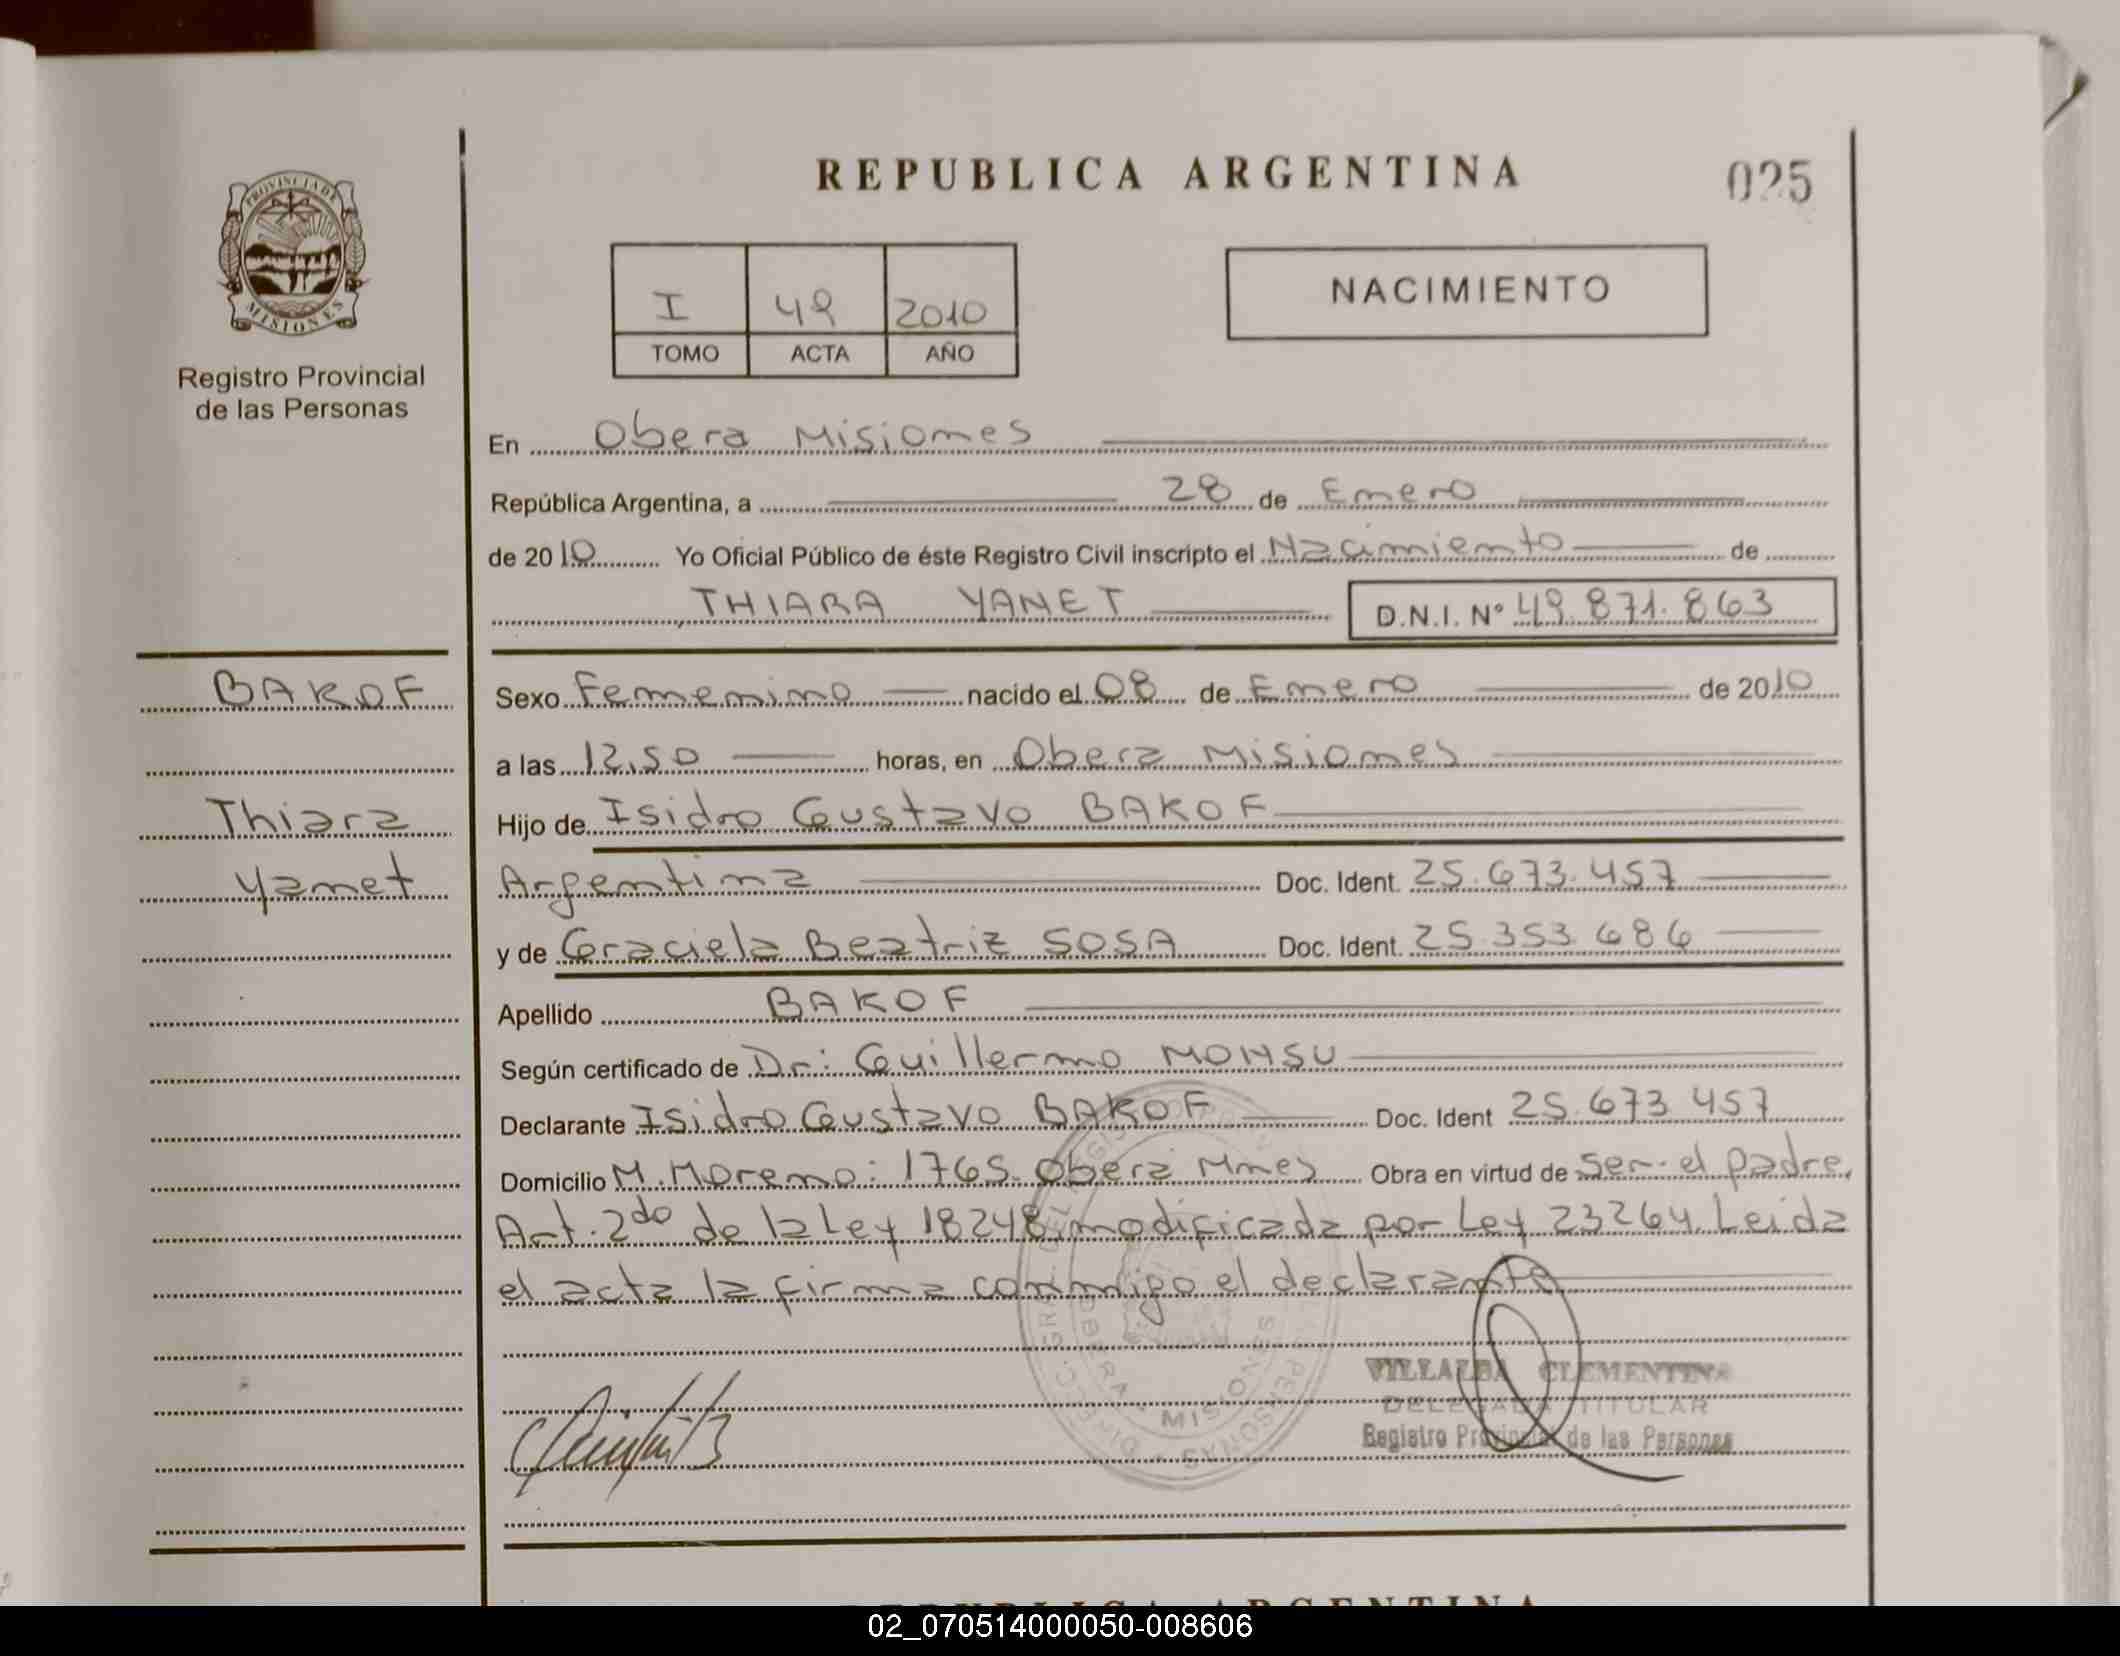 REPUBLICA ARGENTINA
025
PROVINCIA DE
MISIONES
Registro Provincial
de las Personas
I 49 2010
TOMO ACTA AÑO
NACIMIENTO
En Obera Misiones
República Argentina, a 28 de Enero
de 2010 Yo Oficial Público de éste Registro Civil inscripto el Nacimiento de
THIARA YANET D.N.I. Nº 49.871.863
BAKOF
Thiara
Yanet
Sexo Femenino nacido el 08 de Enero de 2010
a las 12,50 horas, en Obera Misiones
Hijo de Isidro Gustavo BAKOF
Argentina Doc. Ident. 25.673.457
y de Graciela Beatriz SOSA Doc. Ident. 25.353.686
Apellido BAKOF
Según certificado de Dr: Guillermo MONSU
Declarante Isidro Gustavo BAKOF Doc. Ident 25.673 457
Domicilio M. Moreno: 1765. Obera Mnes Obra en virtud de ser el padre,
Art. 2do de la Ley 18248 modificada por Ley 23264. Leida
el acta la firma conmigo el declarante
OBERA - MISIONES
VILLALBA CLEMENTINA
DELEGADA TITULAR
Registro Provincial de las Personas
REPUBLICA ARGENTINA
02_070514000050-008606